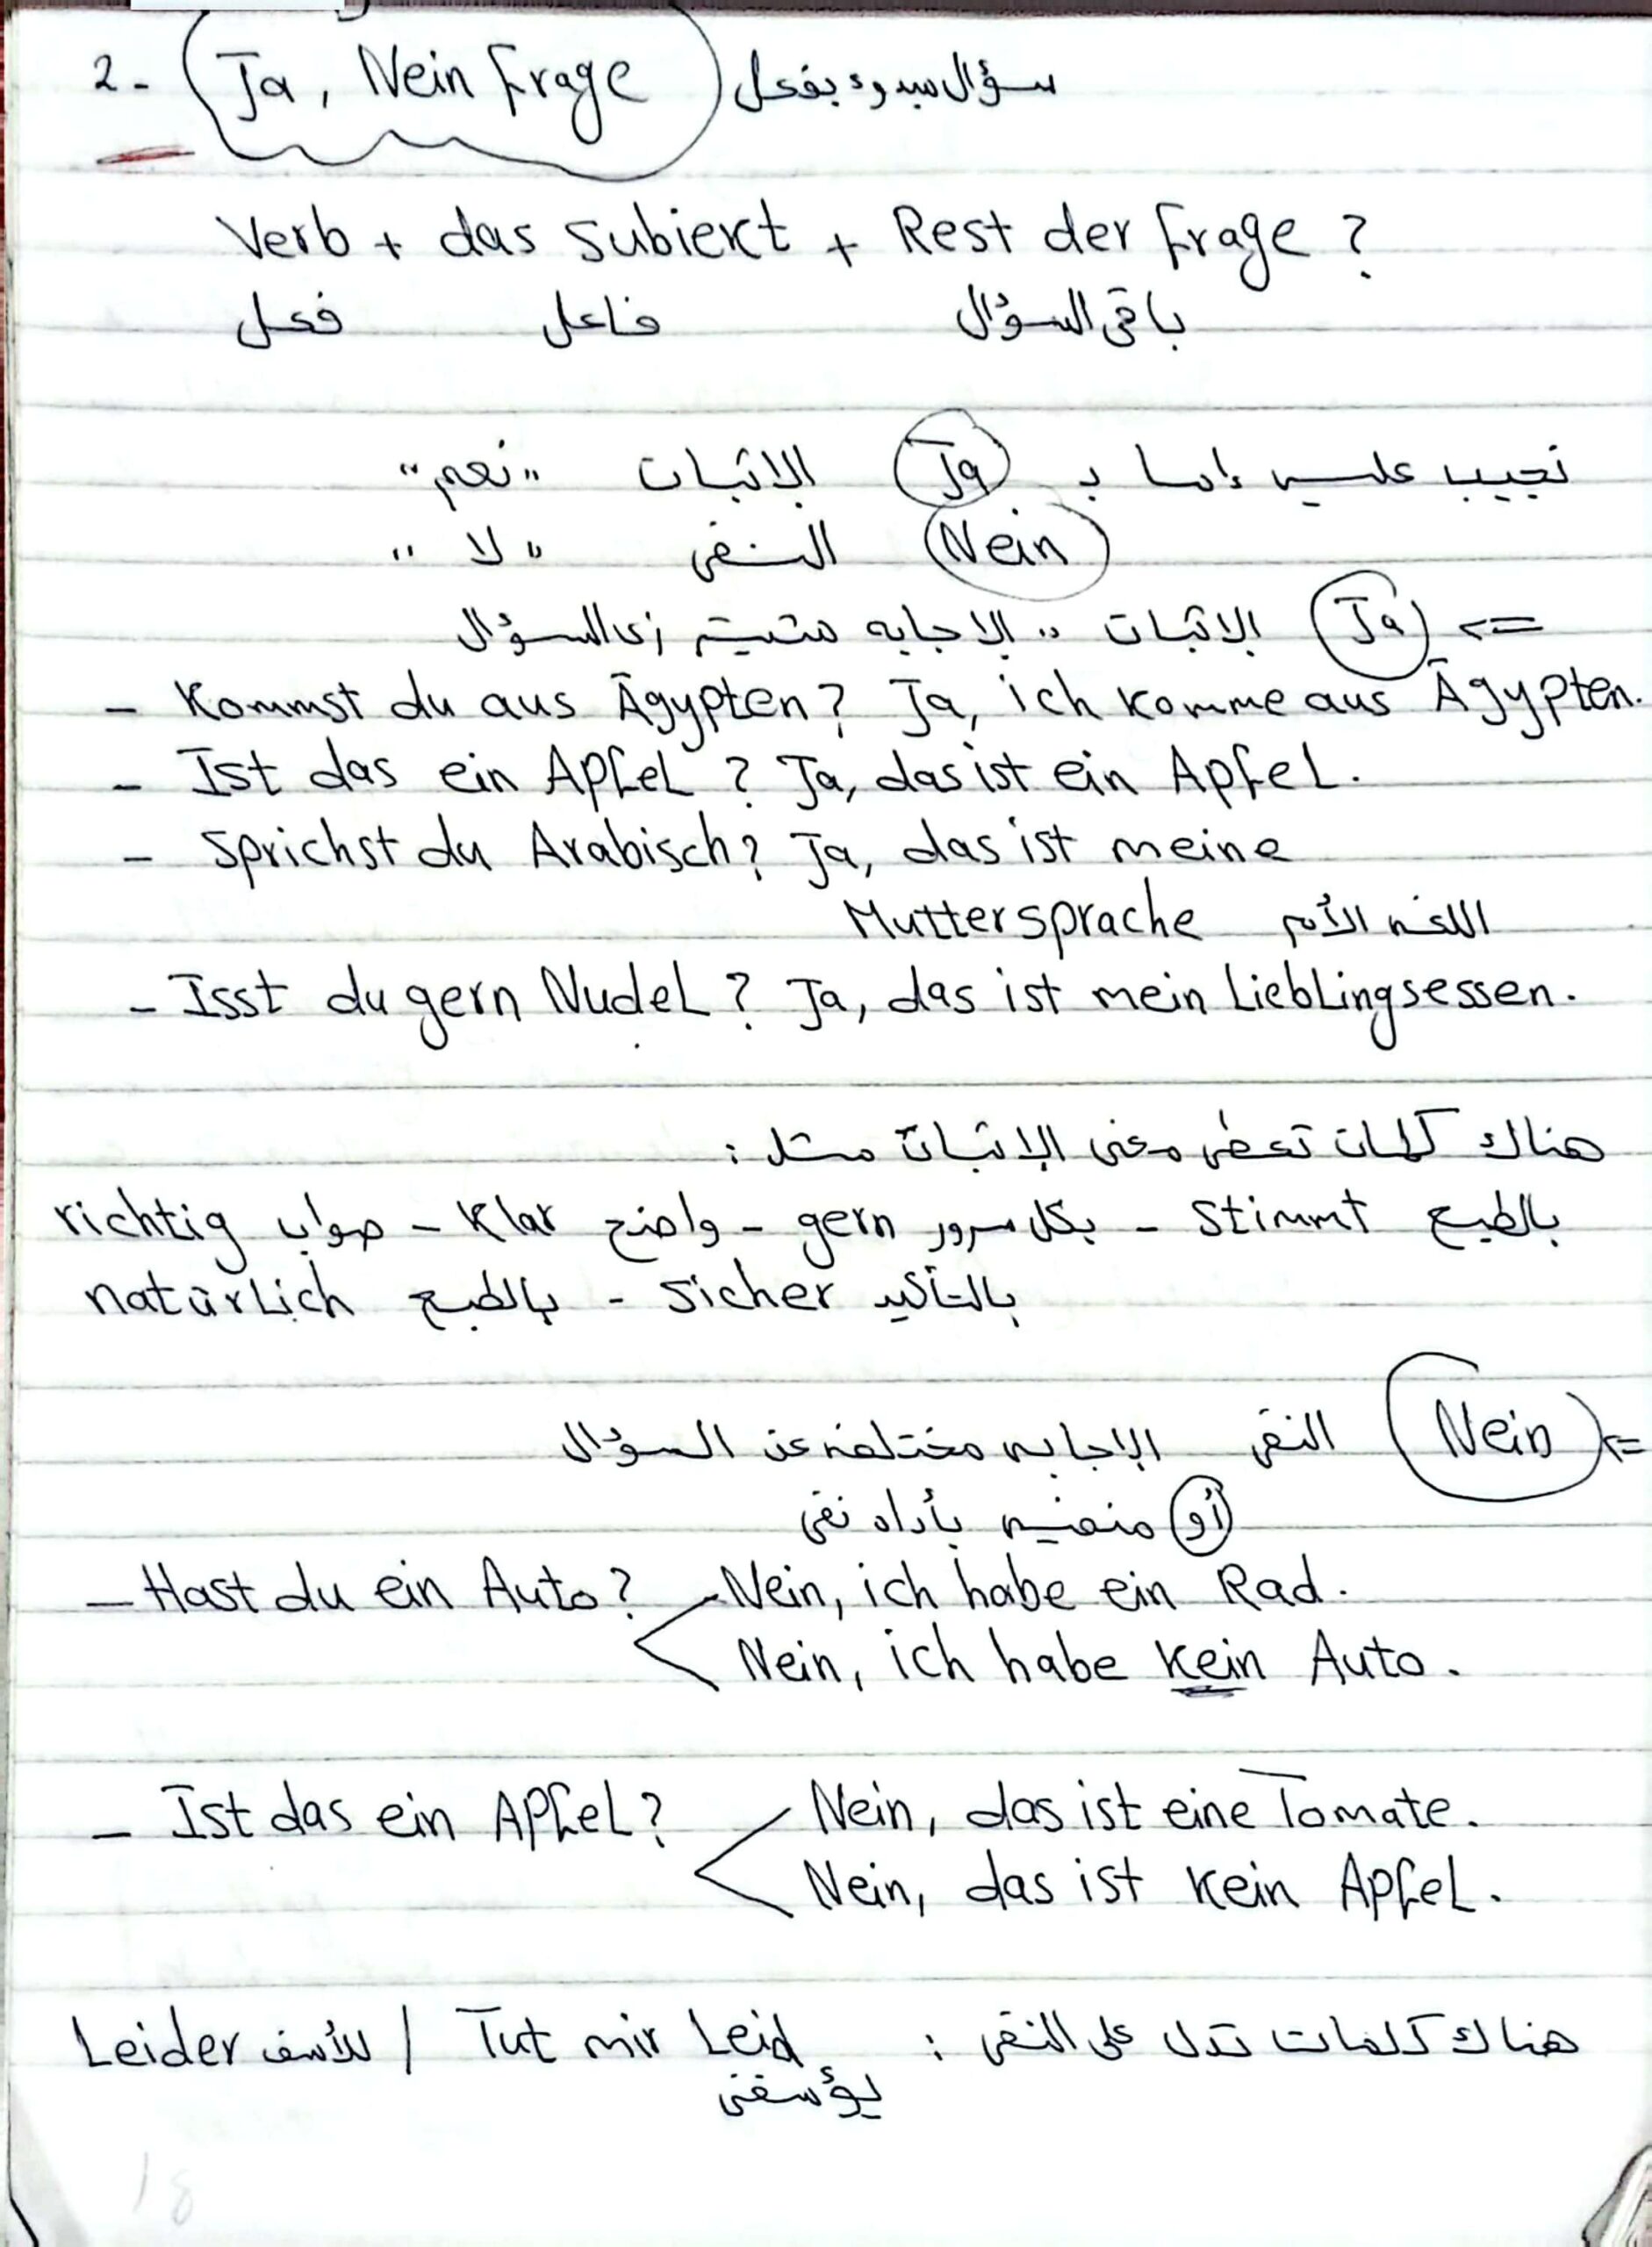 2- Ja, Nein Frage سؤال مبدوء بفعل
Verb + das Subiekt + Rest der Frage ?
فعل فاعل باقى السؤال
نجيب عليه إما بـ Ja الاثبات "نعم"
Nein النفى "لا"
=> Ja الاثبات .. الاجابه مثبته زى السؤال
- Kommst du aus Ägypten? Ja, ich komme aus Ägypten.
- Ist das ein Apfel ? Ja, das ist ein Apfel.
- Sprichst du Arabisch? Ja, das ist meine
Muttersprache اللغه الأم
- Isst du gern Nudel ? Ja, das ist mein Lieblingsessen.
هناك كلمات تعطى معنى الإثبات مثل :
richtig صواب - Klar واضح - gern بكل سرور - Stimmt بالطبع
natürlich بالطبع - Sicher بالتأكيد
=> Nein النفى الإجابه مختلفه عن السؤال
أو منفيه بأداه نفى
- Hast du ein Auto? - Nein, ich habe ein Rad.
Nein, ich habe kein Auto.
- Ist das ein Apfel? Nein, das ist eine Tomate.
Nein, das ist kein Apfel.
هناك كلمات تدل على النفى : Leider للأسف / Tut mir Leid
يؤسفنى
18